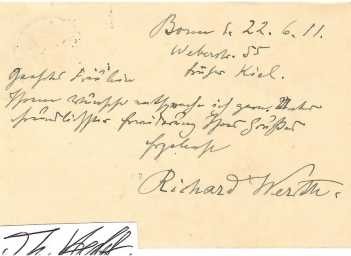 Bonn d. 22.6.11.
Weberstr. 55
früher Kiel.
Geehrtes Fräulein
Ihrem Wunsche entspreche ich gern. Unter
freundlichster Erwiderung Ihres Grußes
Ergebenst
Richard Werth.
Th.